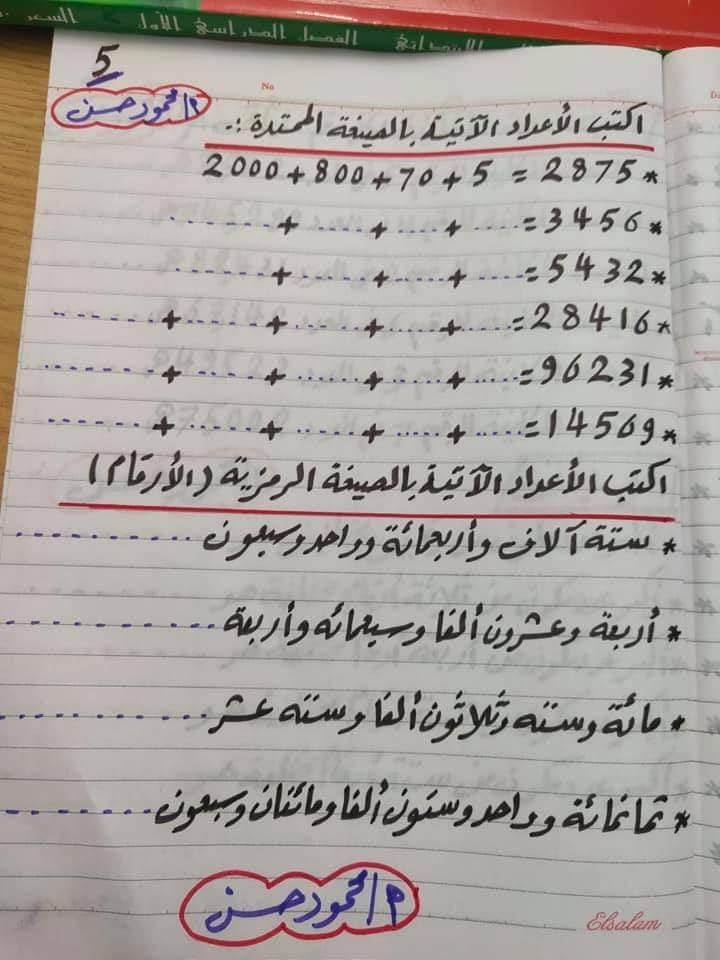 الابتدائي الفصل الدراسي الأول السعر
5
No
م/محمود حسن
اكتب الأعداد الآتية بالصيغة الممتدة :.
* 2875 = 5 + 70 + 800 + 2000
* 3456 = ..... + ..... + ..... + .....
* 5432 = ..... + ..... + ..... + .....
* 28416 = ..... + ..... + ..... + ..... + .....
* 96231 = ..... + ..... + ..... + ..... + .....
* 14569 = ..... + ..... + ..... + ..... + .....
اكتب الأعداد الآتية بالصيغة الرمزية (الأرقام)
* ستة آلاف وأربعمائة وواحد وسبعون ..........
* أربعة وعشرون ألفا وسبعمائه وأربعة ..........
* مائة وسته وثلاثون ألفا وسته عشر ..........
* ثمانمائة وواحد وستون ألفا ومائتان وسبعون ..........
م/محمود حسن
Elsalam